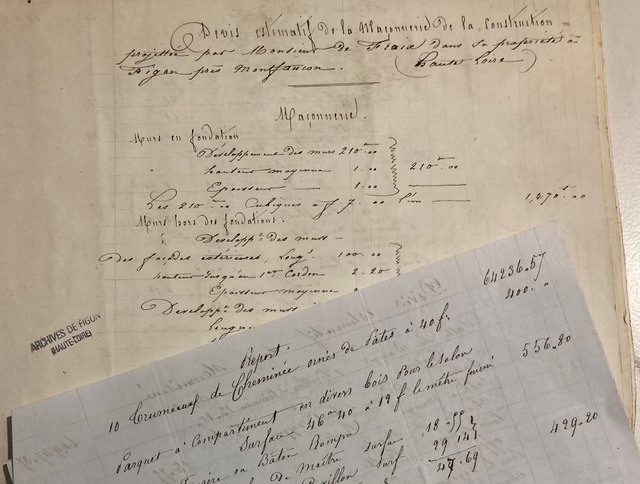 Devis estimatif de la Maçonnerie de la construction
projettée par Monsieur de Fraix dans sa propriété à
Figon près Montfaucon. (haute Loire)
Maçonnerie.
Murs en fondation
Développement des murs 210.00
hauteur moyenne 1.00 210.00
Epaisseur 1.00
Les 210.00 Cubiques à f 7.00 l'un 1,470.00
Murs hors des fondations.
Développt des murs
Des façades extérieures, Longr 100.00
hauteur jusqu'au 1er Cordon 2.20
Epaisseur moyenne
Développt des murs
Longue
ARCHIVES DE FIGON
(HAUTE-LOIRE)
Report. 64236.57
10 Trumeaux de Cheminée ornés de Pâtes à 40 f. 400.
Parquet à Compartiment en divers bois pour le salon
Surface 46m40 à 12 f le mètre fourni 556.80
ou Bâton Rompu
de maître surface 18-55
Pavillon surf 29 14 429.20
47.69